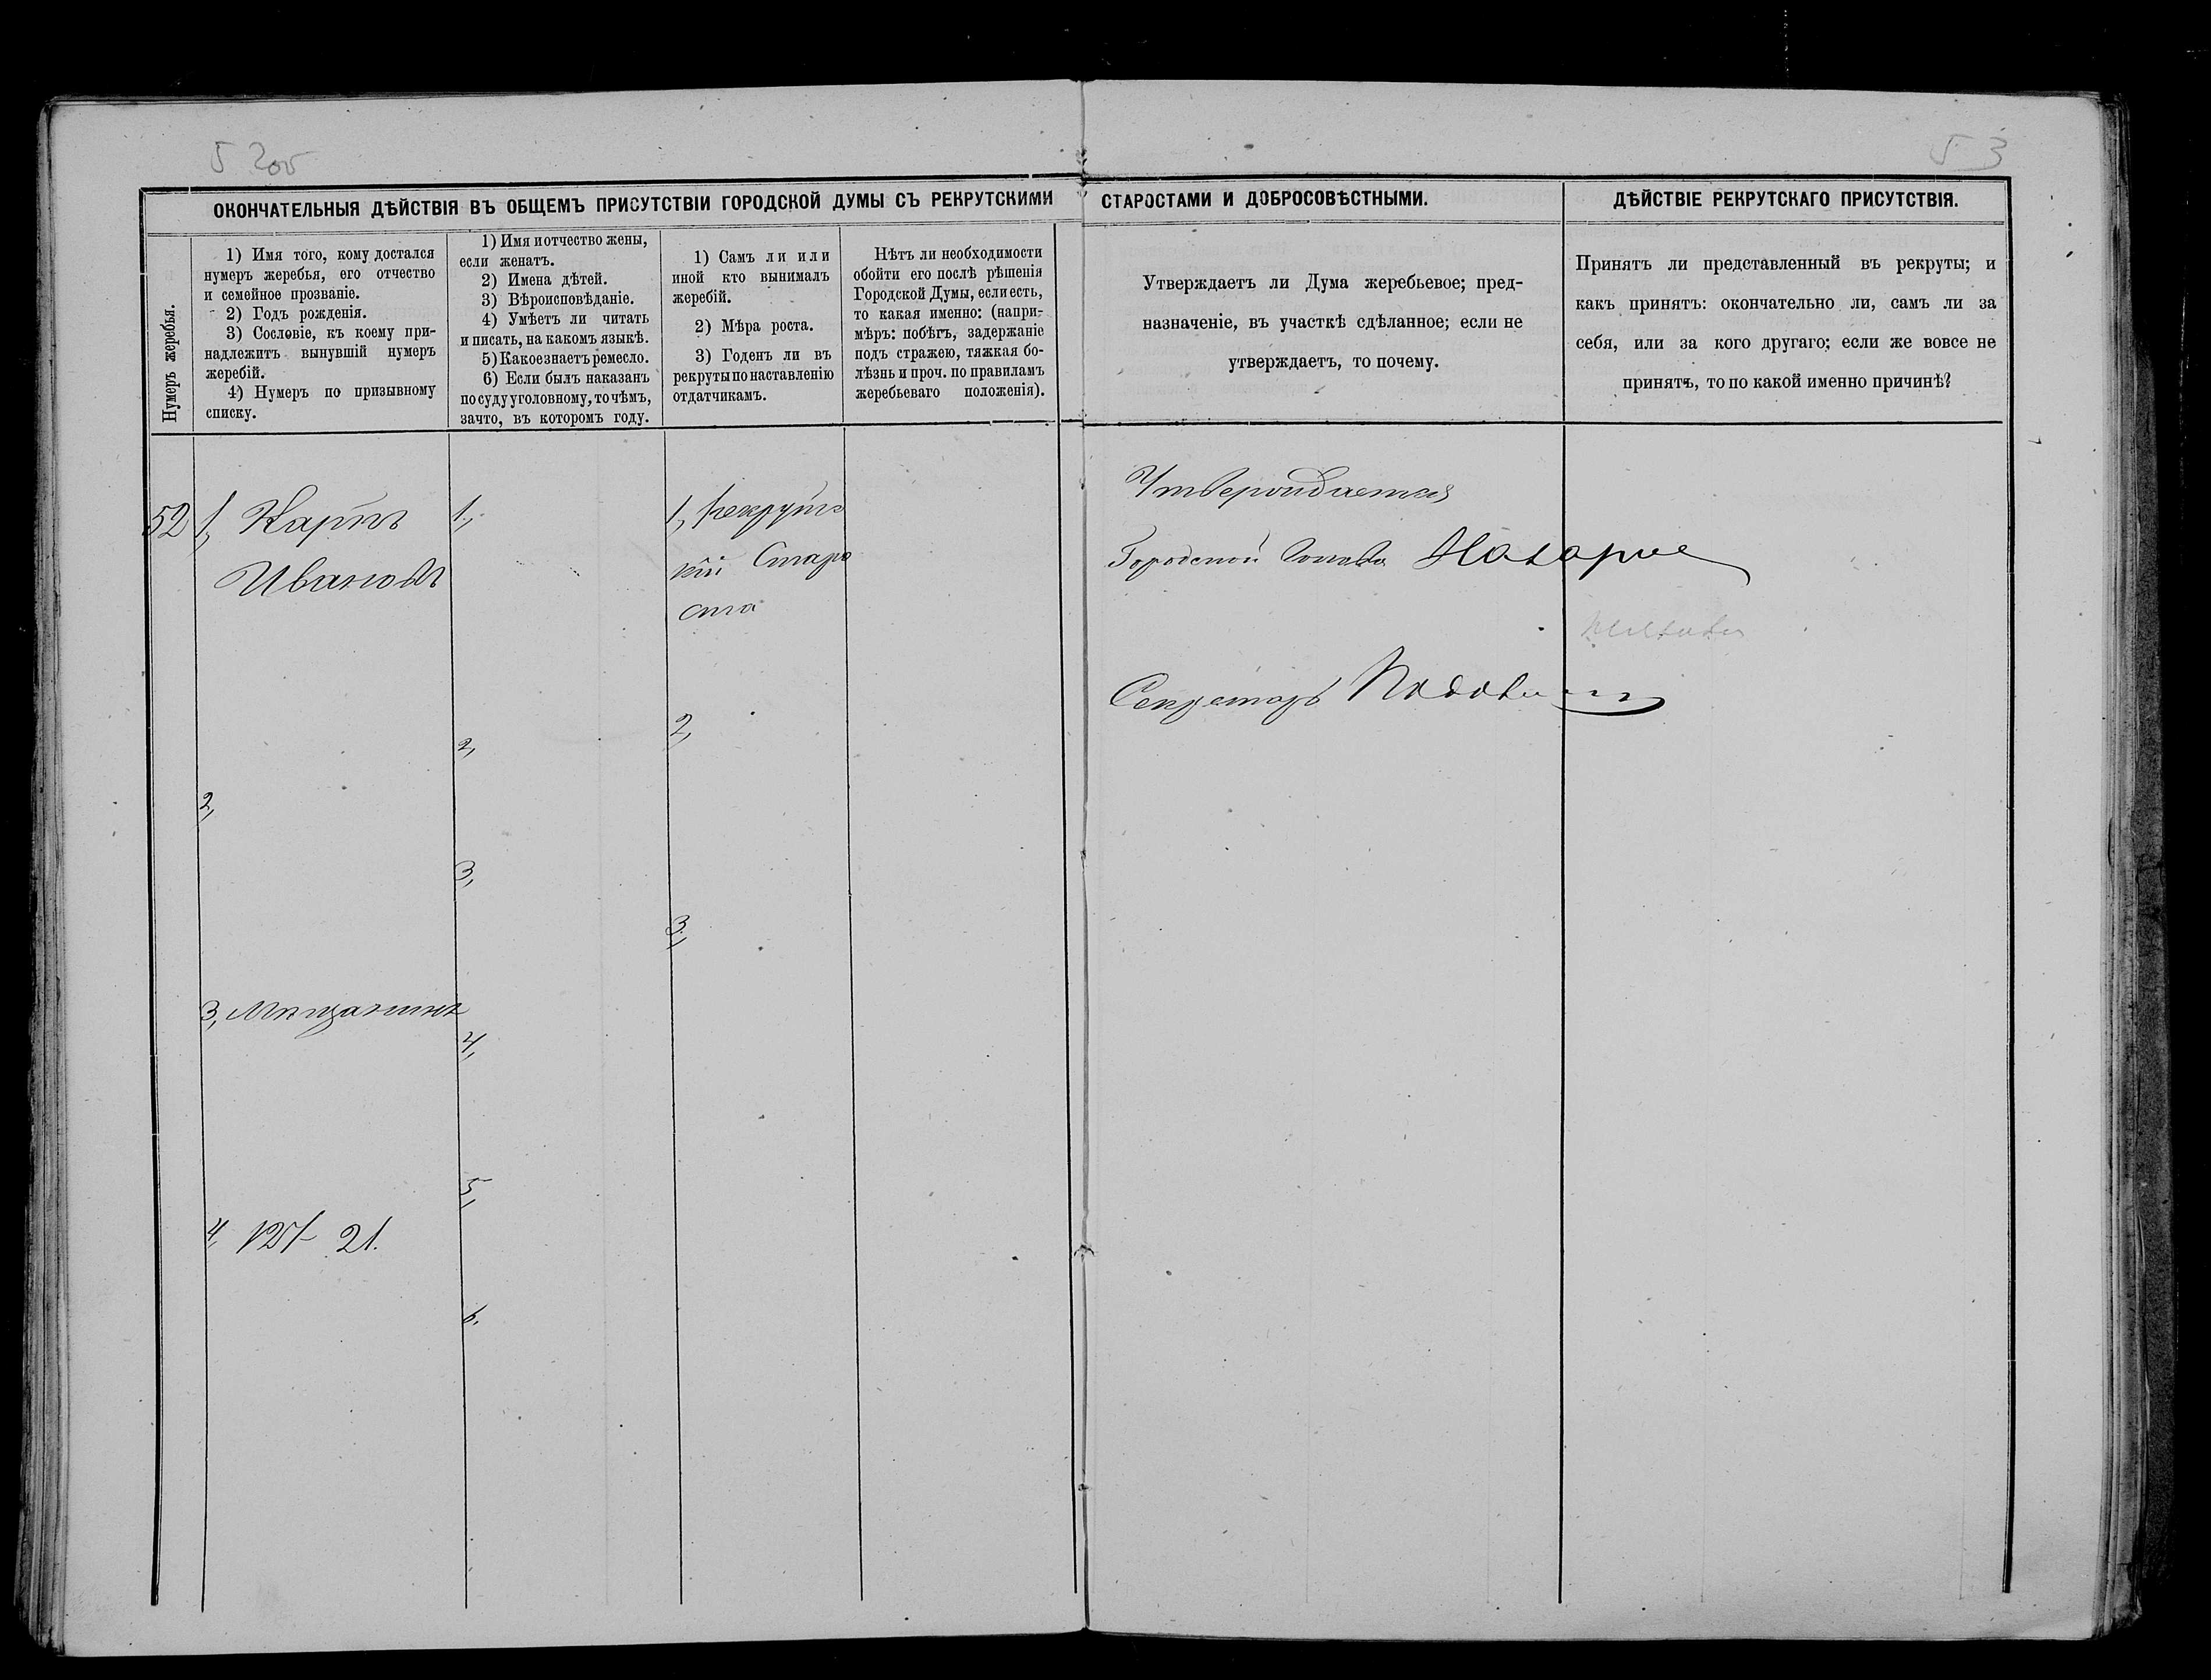 5 2об
53
ОКОНЧАТЕЛЬНЫЯ ДѢЙСТВІЯ ВЪ ОБЩЕМЪ ПРИСУТСТВІИ ГОРОДСКОЙ ДУМЫ СЪ РЕКРУТСКИМИ
СТАРОСТАМИ И ДОБРОСОВѢСТНЫМИ.
ДѢЙСТВІЕ РЕКРУТСКАГО ПРИСУТСТВІЯ.
Нумеръ жеребья.
1) Имя того, кому достался
нумеръ жеребья, его отчество
и семейное прозваніе.
2) Годъ рожденія.
3) Сословіе, къ коему при-
надлежитъ вынувшій нумеръ
жеребій.
4) Нумеръ по призывному
списку.
1) Имя и отчество жены,
если женатъ.
2) Имена дѣтей.
3) Вѣроисповѣданіе.
4) Умѣетъ ли читать
и писать, на какомъ языкѣ.
5) Какое знаетъ ремесло.
6) Если былъ наказанъ
по суду уголовному, то чѣмъ,
зачто, въ которомъ году.
1) Самъ ли или
иной кто вынималъ
жеребій.
2) Мѣра роста.
3) Годенъ ли въ
рекруты по наставленію
отдатчикамъ.
Нѣтъ ли необходимости
обойти его послѣ рѣшенія
Городской Думы, если есть,
то какая именно: (напри-
мѣръ: побѣгъ, задержаніе
подъ стражею, тяжкая бо-
лѣзнь и проч. по правиламъ
жеребьеваго положенія).
Утверждаетъ ли Дума жеребьевое; пред-
назначеніе, въ участкѣ сдѣланное; если не
утверждаетъ, то почему.
Принятъ ли представленный въ рекруты; и
какъ принятъ: окончательно ли, самъ ли за
себя, или за кого другаго; если же вовсе не
принятъ, то по какой именно причинѣ?
52
1, Карпъ
Ивановъ
2,
3, Мѣщанинъ
4, № 21.
1,
2,
3,
4,
5,
6.
1, Рекрутс
кій Старо
ста
2,
3,
Утверждается
Городской Голова
Секретарь